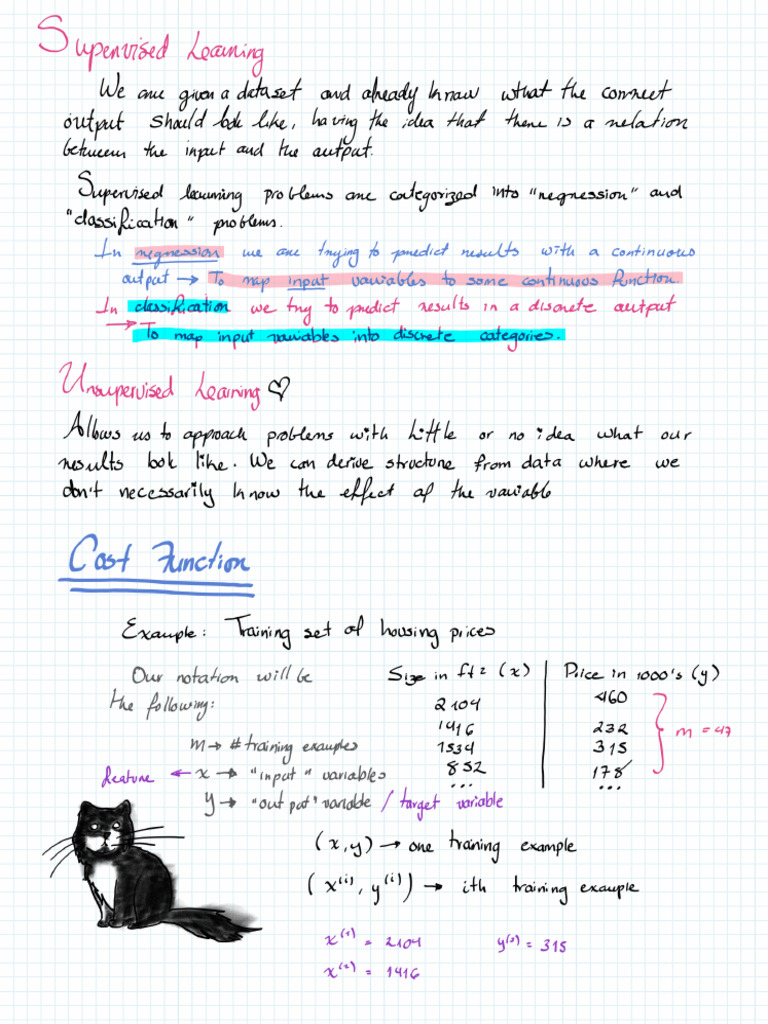 Supervised Learning
We are given a dataset and already know what the correct
output should look like, having the idea that there is a relation
between the input and the output.
Supervised learning problems are categorized into "regression" and
"classification" problems.
In regression we are trying to predict results with a continuous
output → To map input variables to some continuous function.
In classification we try to predict results in a discrete output
→ To map input variables into discrete categories.
Unsupervised Learning ♡
Allows us to approach problems with little or no idea what our
results look like. We can derive structure from data where we
don't necessarily know the effect of the variable
Cost Function
Example: Training set of housing prices
Our notation will be
the following:
m → # training examples
feature ← x → "input" variables
y → "output" variable / target variable
Size in ft² (x) | Price in 1000's (y)
2104 460
1416 232
1534 315
852 178
... ...
m = 47
(x,y) → one training example
(x⁽ⁱ⁾, y⁽ⁱ⁾) → ith training example
x⁽¹⁾ = 2104 y⁽³⁾ = 315
x⁽²⁾ = 1416